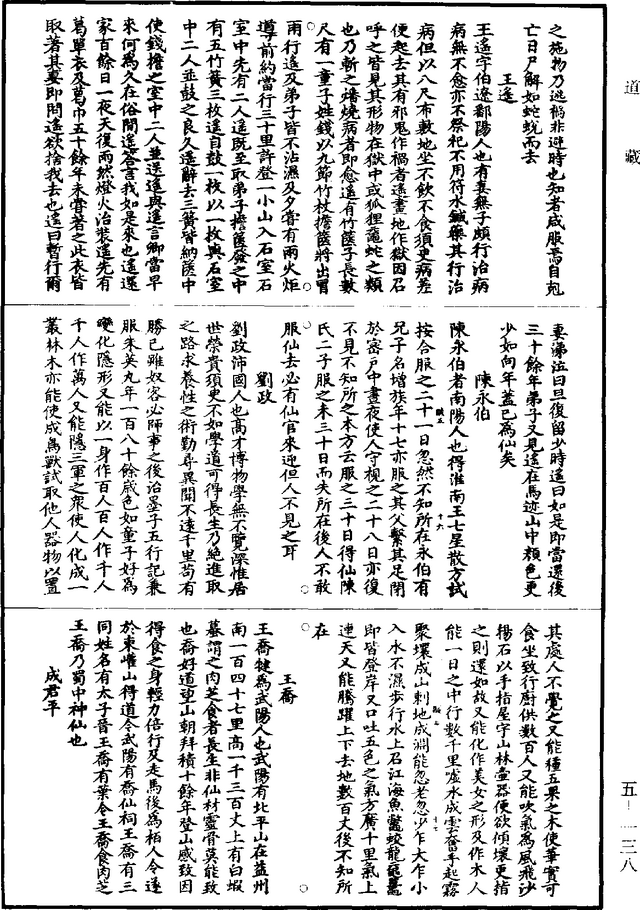 道藏
之施物乃逃禍非避時也知者咸服焉自剋
亡日尸解如蛇蛻而去
王遙
王遙字伯遼鄱陽人也有妻無子頗行治病
病無不愈亦不祭祀不用符水鍼藥其行治
病但以八尺布敷地坐不飲不食須臾病差
便起去其有邪鬼作禍者遙畫地作獄因石
呼之皆見其形物在獄中或狐狸鼉蛇之類
也乃斬之燔燒病者即愈遙有竹篋子長數
尺有一童子姓錢以九節竹杖擔篋將出冒
雨行遙及弟子皆不沾濕及夕嘗有兩火炬
導前約當行三十里許登一小山入石室石
室中先有二人遙既至取弟子擔篋發之中
有五竹簧三枚遙自鼓一枚以一枚與石室
中二人並鼓之良久遙辭去三簧皆納篋中
使錢擔之室中二人並送遙與遙言卿當早
來何為久在俗間遙答言我如是來也遙還
家百餘日一夜天復雨然燈火治裝遙先有
葛單衣及葛巾五十餘年未嘗著之此夜皆
取著其妻即問遙欲捨我去也遙曰暫行爾
妻涕泣曰且復留少時遙曰如是即當還後
三十餘年弟子又見遙在馬迹山中顏色更
少如向年蓋已為仙矣
陳永伯
陳永伯者南陽人也得淮南王七星散方試
按合服之二十一日忽然不知所在永伯有
兄子名增族年十七亦服之其父繫其足閉
於密戶中晝夜使人守視之二十八日亦復
不見不知所之本方云服之三十日得仙陳
氏二子服之未三十日而失所在後人不敢
服仙去必有仙官來迎但人不見之耳
劉政
劉政沛國人也高才博物學無不覽深惟居
世榮貴須臾不如學道可得長生乃絶進取
之路求養性之術勤尋異聞不遠千里苟有
勝己雖奴客必師事之後治墨子五行記兼
服朱英丸年一百八十餘歲色如童子好為
變化隱形又能以一身作百人百人作千人
千人作萬人又能隱三軍之衆使人化成一
叢林木亦能使成鳥獸試取他人器物以置
其處人不覺之又能種五果之木使華實可
食坐致行廚供數百人又能吹氣為風飛沙
揚石以手指屋宇山林壺器便欲傾壞更指
之則還如故又能化作美女之形及作木人
能一日之中行數千里噓水成雲奮手起霧
聚壤成山刺地成淵能忽老忽少乍大乍小
入水不濕步行水上召江海魚鱉蛟龍黿鼉
即皆登岸又口吐五色之氣方廣十里氣上
連天又能騰躍上下去地數百丈後不知所
在
王喬
王喬犍為武陽人也武陽有北平山在益州
南一百四十七里高一千三百丈上有白蝦
蟇謂之肉芝食者長生非仙材靈骨莫能致
也喬好道望山朝拜積十餘年登山感致因
得食之身輕力倍行及走馬後為柏人令遂
於東㠉山得道今武陽有喬仙祠王喬有三
同姓名有太子晉王喬有葉令王喬食肉芝
王喬乃蜀中神仙也
成君平
五—一三八